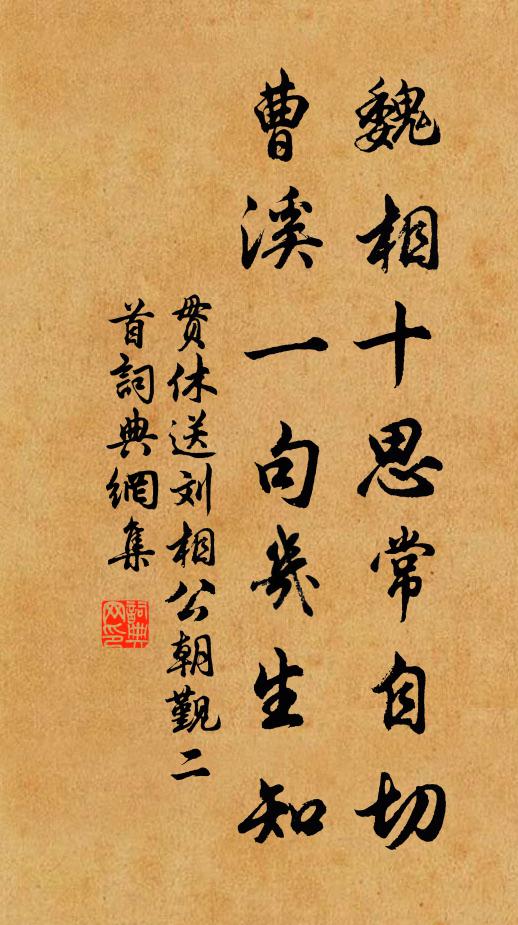 魏相十思常自切
曹溪一句几生知
贯休送刘相公朝觐二
首词典網集
詞典网印